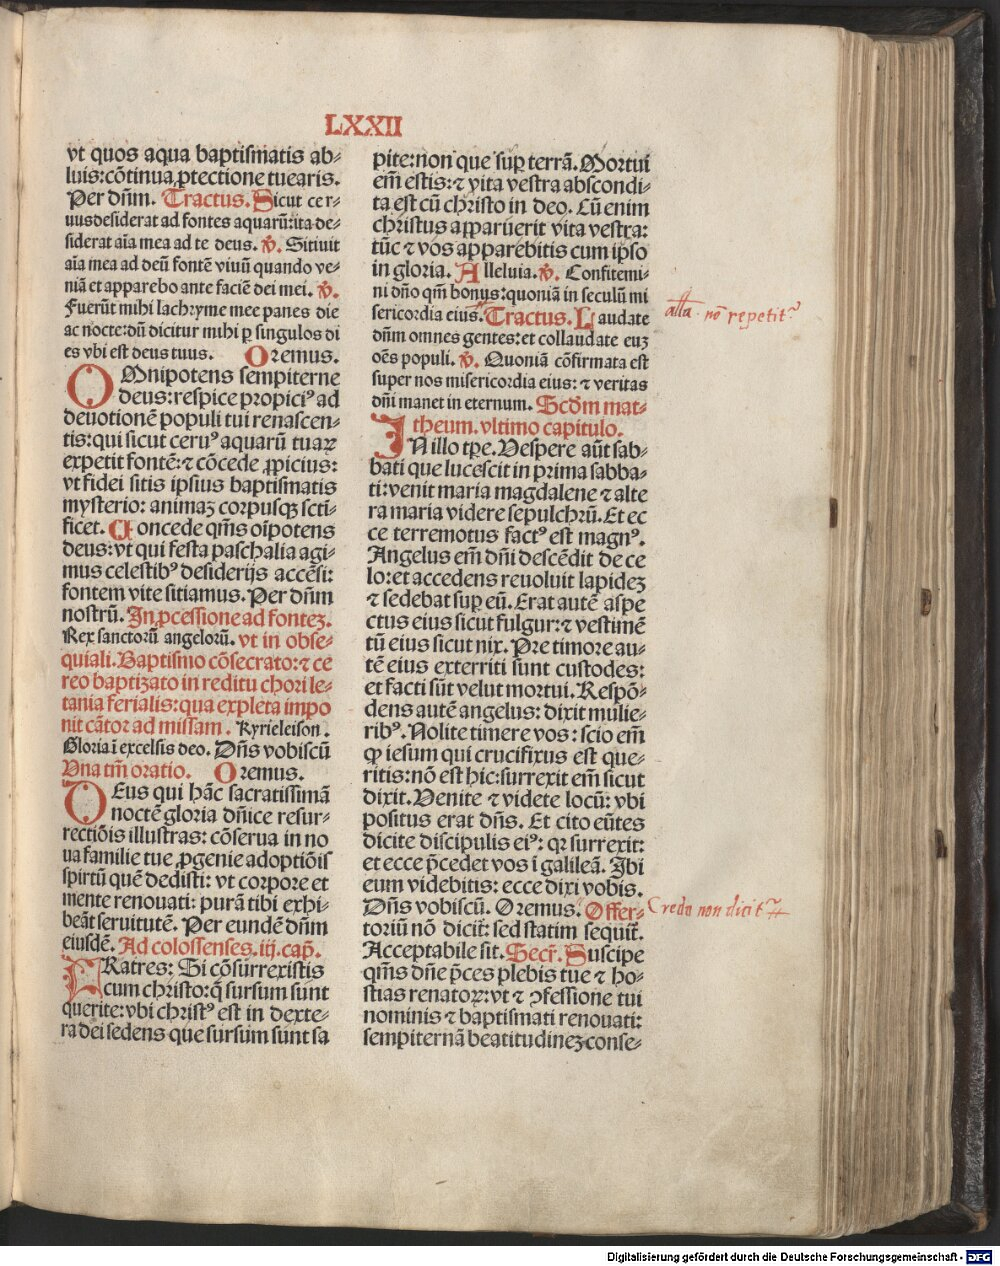 LXXII
vt quos aqua baptismatis ab⸗
luis: cōtinua ꝓtectione tuearis.
Per dn̄m. Tractus. Sicut cer⸗
uus desiderat ad fontes aquarū: ita de⸗
siderat aīa mea ad te deus. ℣. Sitiuit
aīa mea ad deū fontē viuū quando ve⸗
niā et apparebo ante faciē dei mei. ℣.
Fuerūt mihi lachryme mee panes die
ac nocte: dū dicitur mihi ꝑ singulos di
es vbi est deus tuus. Oremus.
OMnipotens sempiterne
deus: respice propiciꝰ ad
deuotionē populi tui renascen⸗
tis: qui sicut ceruꝰ aquarū tuaꝝ
expetit fontē: ⁊ cōcede ꝓpicius:
vt fidei sitis ipsius baptismatis
mysterio: animaꝫ corpusqꝫ scti⸗
ficet. Concede qm̄s oīpotens
deus: vt qui festa paschalia agi⸗
mus celestibꝰ desiderijs accēsi:
fontem vite sitiamus. Per dn̄m
nostrū. In ꝓcessione ad fonteꝫ.
Rex sanctorū angelorū. vt in obse⸗
quiali. Baptismo cōsecrato: ⁊ ce
reo baptizato in reditu chori le⸗
tania ferialis: qua expleta impo
nit cātor ad missam. Kyrieleison.
Gloria ī excelsis deo. Dn̄s vobiscū
Vna tm̄ oratio. Oremus.
DEus qui hāc sacratissimā
noctē gloria dn̄ice resur⸗
rectiōis illustras: cōserua in no
ua familie tue ꝓgenie adoptiōis
spirtū quē dedisti: vt corpore et
mente renouati: purā tibi exhi⸗
beāt seruitutē. Per eundē dn̄m
eiusdē. Ad colossenses. iij. cap̄.
FRatres: Si cōsurrexistis
cum christo: q̄ sursum sunt
querite: vbi christꝰ est in dexte⸗
ra dei sedens que sursum sunt sa
pite: non que suꝑ terrā. Mortui
em̄ estis: ⁊ vita vestra abscondi⸗
ta est cū christo in deo. Cū enim
christus apparuerit vita vestra:
tūc ⁊ vos apparebitis cum ipso
in gloria. Alleluia. ℣. Confitemi⸗
ni dn̄o qm̄ bonus: quoniā in seculū mi
sericordia eius. Tractus. Laudate
dn̄m omnes gentes: et collaudate euꝫ
oēs populi. ℣. Quoniā cōfirmata est
super nos misericordia eius: ⁊ veritas
dn̄i manet in eternum. Scd̄m mat⸗
theum. vltimo capitulo.
IN illo tꝑe. Vespere aūt sab⸗
bati que lucescit in prima sabba⸗
ti: venit maria magdalene ⁊ alte
ra maria videre sepulchrū. Et ec
ce terremotus factꝰ est magnꝰ.
Angelus em̄ dn̄i descēdit de ce
lo: et accedens reuoluit lapideꝫ
⁊ sedebat suꝑ eū. Erat autē aspe
ctus eius sicut fulgur: ⁊ vestimē
tū eius sicut nix. Pre timore au⸗
tē eius exterriti sunt custodes:
et facti sūt velut mortui. Respō⸗
dens autē angelus: dixit mulie⸗
ribꝰ. Nolite timere vos: scio em̄
ꝙ iesum qui crucifixus est que⸗
ritis: nō est hic: surrexit em̄ sicut
dixit. Venite ⁊ videte locū: vbi
positus erat dn̄s. Et cito eūtes
dicite discipulis eiꝰ: qꝛ surrexit:
et ecce p̄cedet vos ī galileā. Ibi
eum videbitis: ecce dixi vobis.
Dn̄s vobiscū. Oremus. Offer⸗
toriū nō dicit̄: sed statim sequit̄.
Acceptabile sit. Secr̄. Suscipe
qm̄s dn̄e p̄ces plebis tue ⁊ ho⸗
stias renatoꝝ: vt ⁊ ꝯfessione tui
nominis ⁊ baptismati renouati:
sempiternā beatitudineꝫ conse⸗
alla. nō repetit᷑
Credo non dicit᷑
Digitalisierung gefördert durch die Deutsche Forschungsgemeinschaft - DFG